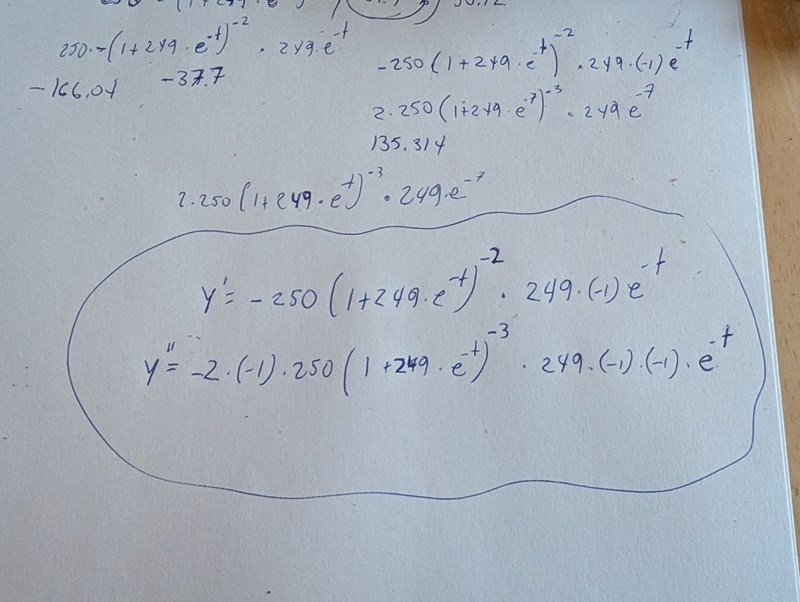 250·-(1+249·e^-t)^-2 · 249·e^-t
-166,04 -37.7
-250(1+249·e^-t)^-2 · 249·(-1)e^-t
2·250(1+249·e^-7)^-3 · 249e^-7
135.314
2·250(1+249·e^-t)^-3 · 249·e^-7
y' = -250(1+249·e^-t)^-2 · 249·(-1)e^-t
y'' = -2·(-1)·250(1+249·e^-t)^-3 · 249·(-1)·(-1)·e^-t